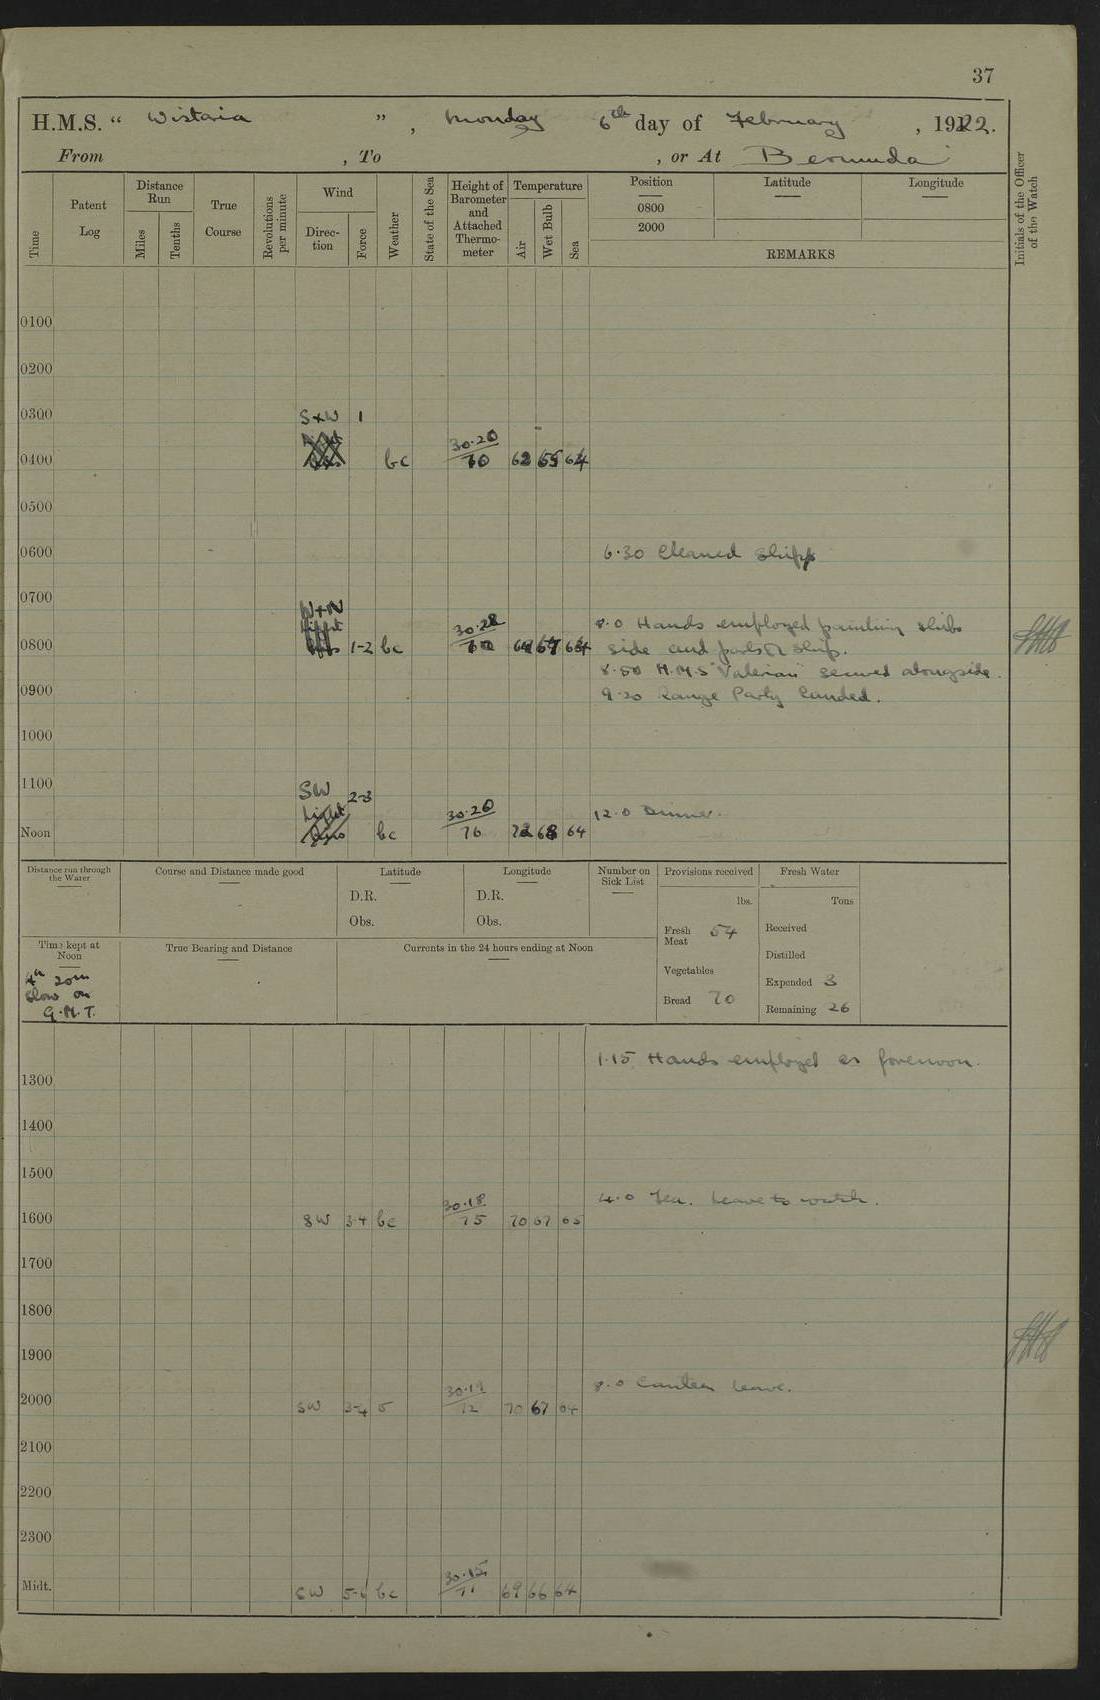 37
H.M.S. “ Wistaria ” , Monday 6th day of February , 1922.
From , To , or At Bermuda
Time
Patent Log
Distance Run
Miles
Tenths
True Course
Revolutions per minute
Wind
Direc-tion
Force
Weather
State of the Sea
Height of Barometer and Attached Thermo-meter
Temperature
Air
Wet Bulb
Sea
Position
0800
2000
Latitude
Longitude
REMARKS
Initials of the Officer of the Watch
0100
0200
0300
S+W 1
30.20
0400 bc 70 62 65 64
0500
0600
6.30 Cleaned Shipp
0700
W+N
30.28
8.0 Hands employed painting ships
0800 1-2 bc side and parts of ship.
8.50 H.M.S "Valerian" secured alongside.
0900
9.20 Range Party landed.
1000
1100
SW 2-3
Light
30.20
12.0 Dinner.
Noon bc 76 72 68 64
Distance run through the Water
Course and Distance made good
Latitude
D.R.
Obs.
Longitude
D.R.
Obs.
Number on Sick List
Provisions received
lbs.
Fresh Meat 54
Vegetables
Bread 70
Fresh Water
Tons
Received
Distilled
Expended 3
Remaining 26
Time kept at Noon
4h 20m
Slow on
G.M.T.
True Bearing and Distance
Currents in the 24 hours ending at Noon
1.15 Hands employed as forenoon.
1300
1400
1500
4.0 Tea. Leave to watch.
30.18
1600 SW 3-4 bc 75 70 67 65
1700
1800
1900
8.0 Canteen leave.
30.19
2000 SW 3-4 72 70 67 64
2100
2200
2300
30.15
Midt. SW 5-6 bc 69 66 64